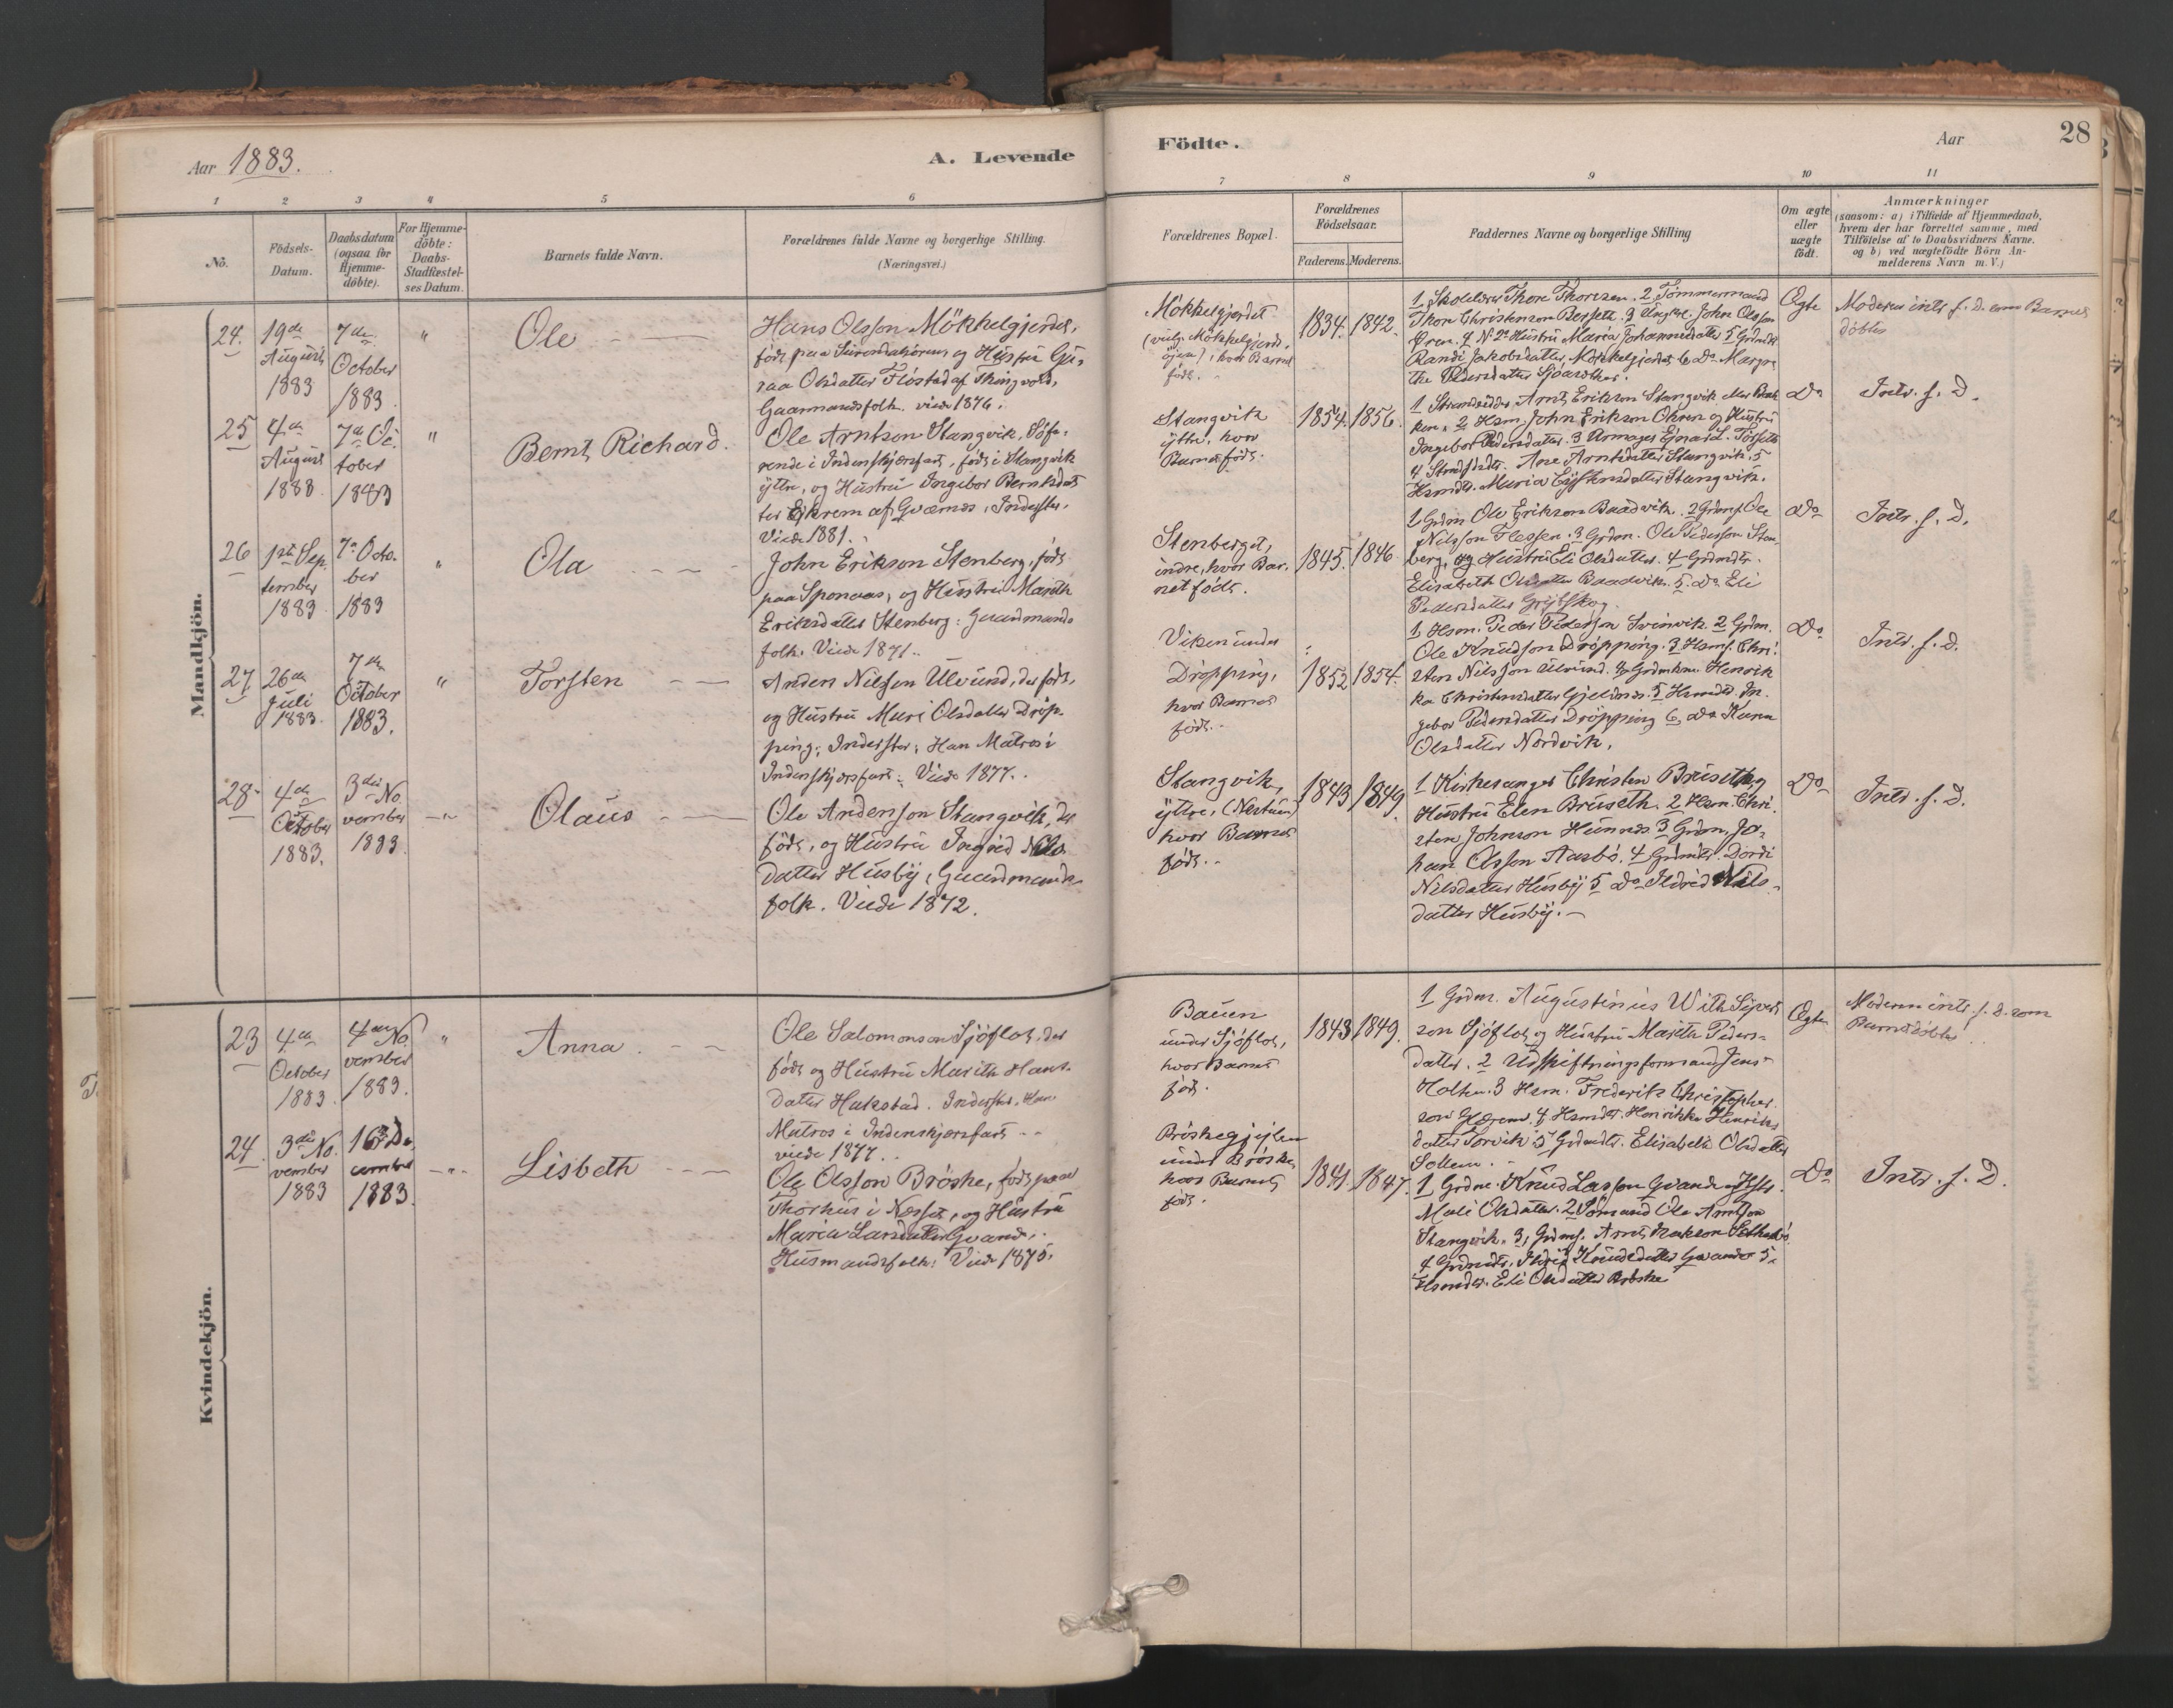 Aar 1883.
A. Levende
Födte.
Aar
28
1 2 3 4 5 6 7 8 9 10 11
No.
Födsels-
Datum.
Daabsdatum
(ogsaa for
Hjemme-
döbte).
For Hjemme-
döbte:
Daabs-
Stadfæstel-
ses Datum.
Barnets fulde Navn.
Forældrenes fulde Navne og borgerlige Stilling.
(Næringsvei.)
Forældrenes Bopæl.
Forældrenes
Födselsaar.
Faderens. Moderens.
Faddernes Navne og borgerlige Stilling
Om ægte
eller
uægte
födt.
Anmærkninger
(saasom: a) i Tilfælde af Hjemmedaab,
hvem der har forrettet samme, med
Tilföielse af to Daabsvidners Navne.
og b) ved uægtefödte Börn An-
melderens Navn m. V.)
Mandkjön.
24.
19de
August
1883
7de
October
1883.
"
Ole
Hans Olsson Mökkelgjerdet,
födt paa Surendalsören, og Hustru Gu-
Olsdatter Flöstad af Thingvold,
Gaardmandsfolk. viede 1876.
Mökkelgjerdet
hvor Barnet
födt.
1834. 1842.
1 Thore Thoresen. 2 Tömmermand
Thore Christensen Bersett. 3 John Olsson
Hustru Maria Johannesdatter 5
Randi Jakobsdatter Mökkelgjerdet 6 Do Margre-
the Pedersdatter
Ægte
Moderen intr. f. D. som Barnet
döbtes
25
4de
August
1883
7de Oc-
tober
1883
"
Bernt Richard.
Ole Arntson Stangvik, Söfa-
rende i Indenskjærsfart, födt i Stangvik
ytre, og Hustru Ingebor Berntsdat-
ter Ejkrem af Qvernes, Inderster.
Viede 1881.
Stangvik
ytre, hvor
Barnet födt.
1854. 1856.
1 Arnt Erikson Stangvik
2 Hsm. John Erikson Ohren og Hustru
Ingebor Pedersdatter. 3
4 Ane Arntsdatter Stangvik. 5
Maria Eystensdatter Stangvik.
Do
Intr. f. D.
26
1ste Sep-
tember
1883
7de Octo-
ber
1883
"
Ola
John Erikson Stenberg, födt
paa Sponaas, og Hustru Marith
Eriksdatter Stenberg: Gaardmands
folk. Viede 1871.
Stenberget,
indre, hvor Bar-
net födt.
1845. 1846
1 Grdm Ole Erikson Baadvik. 2 Ole
Nilsson Flessen. 3 Grdm. Ole Pedersson Sten-
berg, og Hustru Eli Olsdatter. 4 Grdmdtr.
Elisabeth Olsdatter Baadvik. 5. Do Eli
Pedersdatter Gröftskog.
Do
Intr. f. D.
27.
26de
Juli
1883.
7de
October
1883.
"
Torsten
Anders Nilsson Ulvund, der födt,
og Hustru Mari Olsdatter Dröp-
ping; Inderster; Han Matros i
Indenskjærsfart: Viede 1877.
Viken under
Dröpping,
hvor Barnet
födt.
1852 1854.
1 Hsm. Peder Pederson Svinvik. 2 Grdm.
Ole Knudson Dröpping. 3 Chri-
sten Nilsson Ulvund. 4 Henrik-
ka Christensdatter Gjeldnes. 5 In-
gebor Pedersdatter Dröpping 6 Do Karen
Olsdatter Nordvik.
Do
Intr. f. D.
28.
4de
October
1883.
3die No-
vember
1883
"
Olaus
Ole Andersson Stangvik, der
födt, og Hustru Ingrid Nils-
datter Husby, Gaardmands-
folk. Viede 1872.
Stangvik,
ytre, (Nestun)
hvor Barnet
födt.
1843 1849.
1 Kirkesanger Christen Bruset og
Hustru Elen Bruseth. 2 Hsm. Chri-
sten Johnson Hunnes. 3 Grdm. Jo-
han Olsson Aasbö. 4 Grdmdtr. Dordi
Nilsdatter Husby 5 Do Ildrid Nils-
datter Husby.
Do
Intr. f. D.
Kvindekjön.
23
4de
October
1883.
4de No-
vember
1883.
"
Anna
Ole Salomonson Sjöflot, der
födt og Hustru Marith Hans-
datter Hakstad. Inderster, Han
Matros i Indenskjærsfart
viede 1877.
Bauen
under Sjöflot,
hvor Barnet
födt.
1843 1849.
1 Grdm. Augustinius With Sivert-
son Sjöflot, og Hustru Marith Peders-
datter. 2 Udskiftningsformand Jens
Holten. 3 Hsm. Frederik Christopher-
son Glærem. 4 Hsmdtr. Henrikke Henriks-
datter Torvik. 5 Grdmdtr. Elisabeth Olsdatter
Solem.
Ægte
Moderen intr. f. D. som
Barnet döbtes
24.
3die No-
vember
1883
16de De-
cember
1883.
"
Lisbeth
Ole Olsson Bröske, födt paa
Thorhus i Nesset, og Hustru
Maria Larsdatter Qvande,
Husmandsfolk: Viede 1875.
Bröskegjejlen
under Bröske,
hvor Barnet
födt.
1841. 1847.
1 Grdm. Knud Larsson Qvande og Hstr.
Mali Olsdatter. 2 Sömand Ole Arntson
Stangvik. 3, Arnt Isakson
4 Grdmdtr. Ildrid Knudsdatter Qvande 5.
Hsmdtr. Eli Olsdatter Bröske
Do
Intr. f. D.